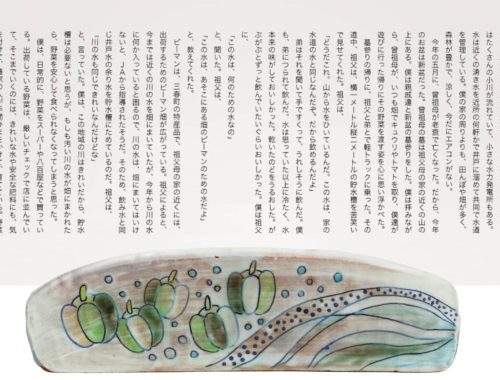 はたくさんの小川が流れていて、小さいが、小井手水力発電所もある。
水は近くの湧き水を近所の何軒かで井戸に溜めて共同で水道
を管理している。僕の家の周りは、田んぼや畑が多く、
森林が豊かで、涼しく、今だにエアコンがない。
今年の五月に、曾祖母が老衰で亡くなった。だから、今年
のお盆は新盆だった。曾祖母の墓は祖父母の家の近くの山の
上にある。僕は親戚達と新盆の墓参りをした。僕は拝みなが
ら、曾祖母が、いつも畑でキュウリやトマトを取り、僕達が
遊びに行った帰りにその野菜を渡す姿を心に思い浮かべた。
墓参りの帰りに、祖父と弟とで軽トラックに乗った。その
道中、祖父は、横一メートル縦二メートルの貯水槽を苦笑い
で見せてくれた。祖父は、
「どうだこれ、山から水をひいているんだ。この水は、家の
水道の水と同じなんだぞ。だから飲めるんだよ」
弟はそれを聞いて手ですくって、うれしそうに飲んだ。僕
も、弟につられて飲んだ。水は思っていた以上に冷たく、水
本来の味がしておいしかった。乾いたのどをうるおした。が
ぶがぶとずっと飲んでいたいぐらいおいしかった。僕は祖父
に、
「この水は、何のための水なの」
と、聞いた。祖父は、
「この水は、あそこにある畑のピーマンのための水だよ」
と、教えてくれた。
ピーマンは、三春町の特産品で、祖父母の家の近くには、
出荷するためのピーマン畑が広がっている。祖父によると、
今までは近くの川の水を畑にまいていたが、今年から川の水
に何か入っていると困るので、川の水は、畑にまいてはいけ
ないと、JAから指導されたそうだ。そのため、飲み水と同
じ井戸水の余り水を貯水槽にためているのだ。祖父は、
「川の水も同じできれいなんだけどな」
と、言っていた。僕は、この地域の川はきれいだから、貯水
槽は必要ないと思うが、もしも汚い川の水が畑にまかれた
ら、野菜を安心して食べられなくなってしまうと思った。
僕は、日常的に、野菜をスーパーや八百屋などで買ってい
る。出荷している野菜は、厳しいチェックで店に並んでい
て、そこまでいくのにも、きれいな水や安全な肥料にも、気